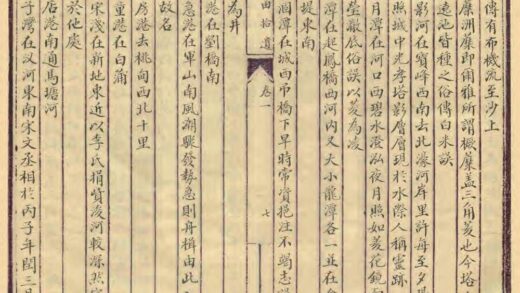 傳有布機流至沙上
洲蕖即爾雅所謂橛蓋三角菱也今塔
遶池皆種之俗傳白米
影河在寶峰西南去北濠河岸里許每至夕陽
照城中光孝塔影層層現於水際人稱靈跡
月潭在河口西碧水澄泓夜月照如菱花鏡
瑩徹底俗誤以菱為凌
潭在起鳳橋西河內又大小龍潭各一並在
堤東南
涸潭在城西弔橋下旱時常資挹注不竭志
由拾遺 卷一 七
為井
港在劉橋南
急港在軍山南風潮驟發勢急則舟楫由此
故名
房港去桃甸西北十里
董港在白蒲
宋淺在新地東近以李氏捐貲浚河較深然
於他處
店港南通馬塘河
子灣在汊河東南宋文丞相於丙子年閏三月